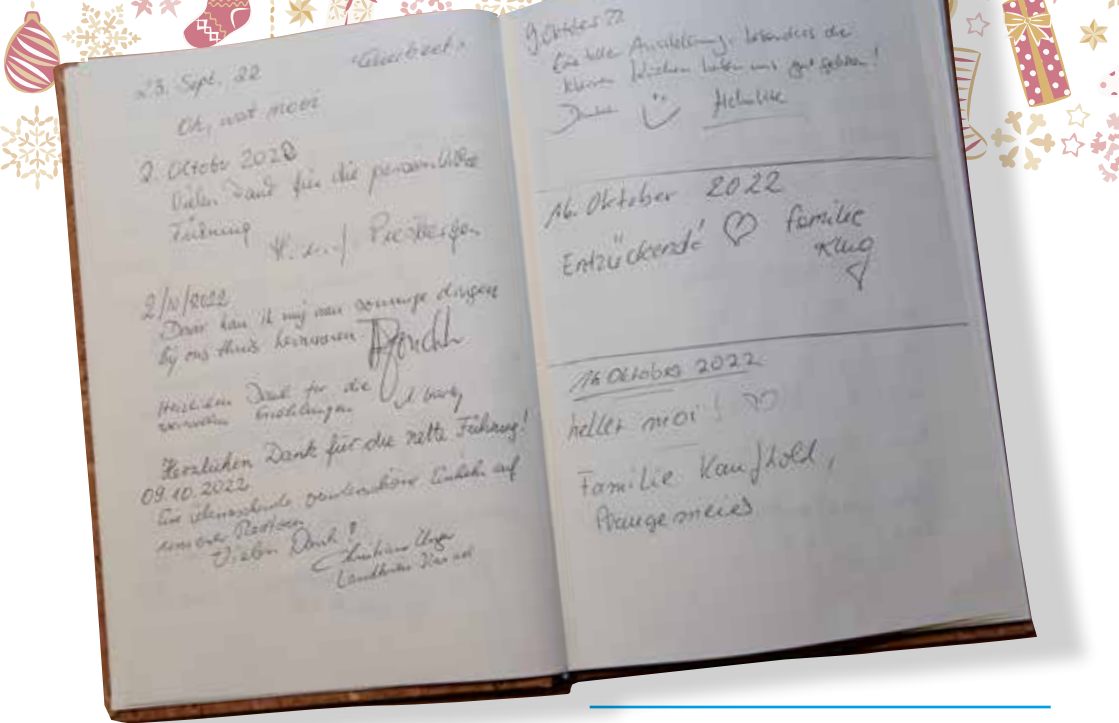 23. Sept. 22
Oh, wat mooi
2. Oktober 2022
Vielen Dank für die persönliche
Führung
H. u. J.
2/10/2022
Daar kan ik mij van sommige dingen
bij ons thuis herinneren
Herzlichen Dank für die
Erzählungen
Herzlichen Dank für die nette Führung!
09.10.2022
Eine wunderschöne auf
unserer
Vielen Dank!
Christiane Unger
9 Oktober 22
Eine tolle Ausstellung, besonders die
kleinen Küchen haben uns gut gefallen!
Danke
16. Oktober 2022
Entzückend! Familie
Klug
16 Oktober 2022
heller moi!
Familie Kaufhold,